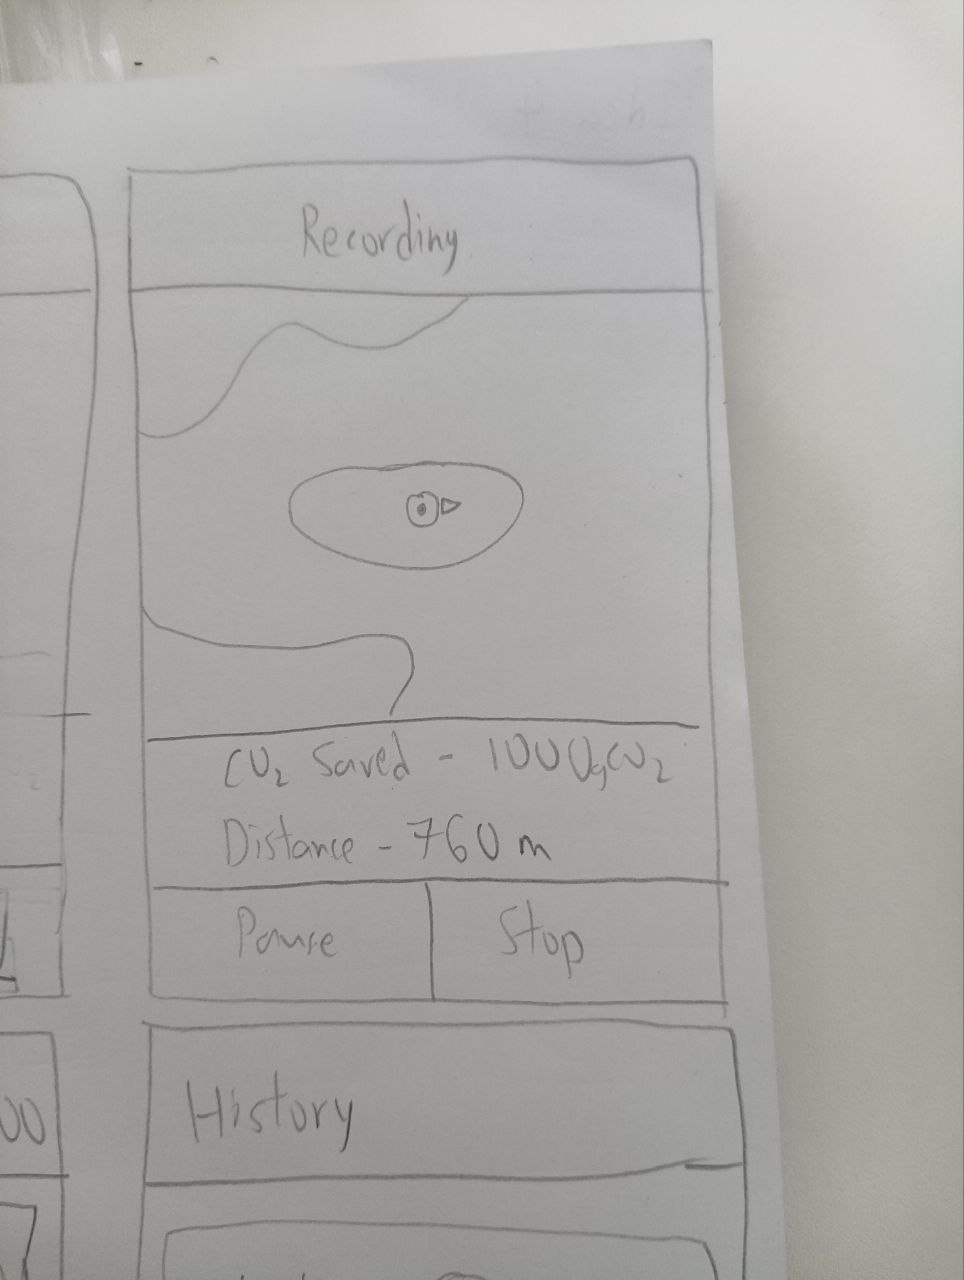 Recording
CO₂ Saved - 1000gCO₂
Distance - 760 m
Pause
Stop
00
History